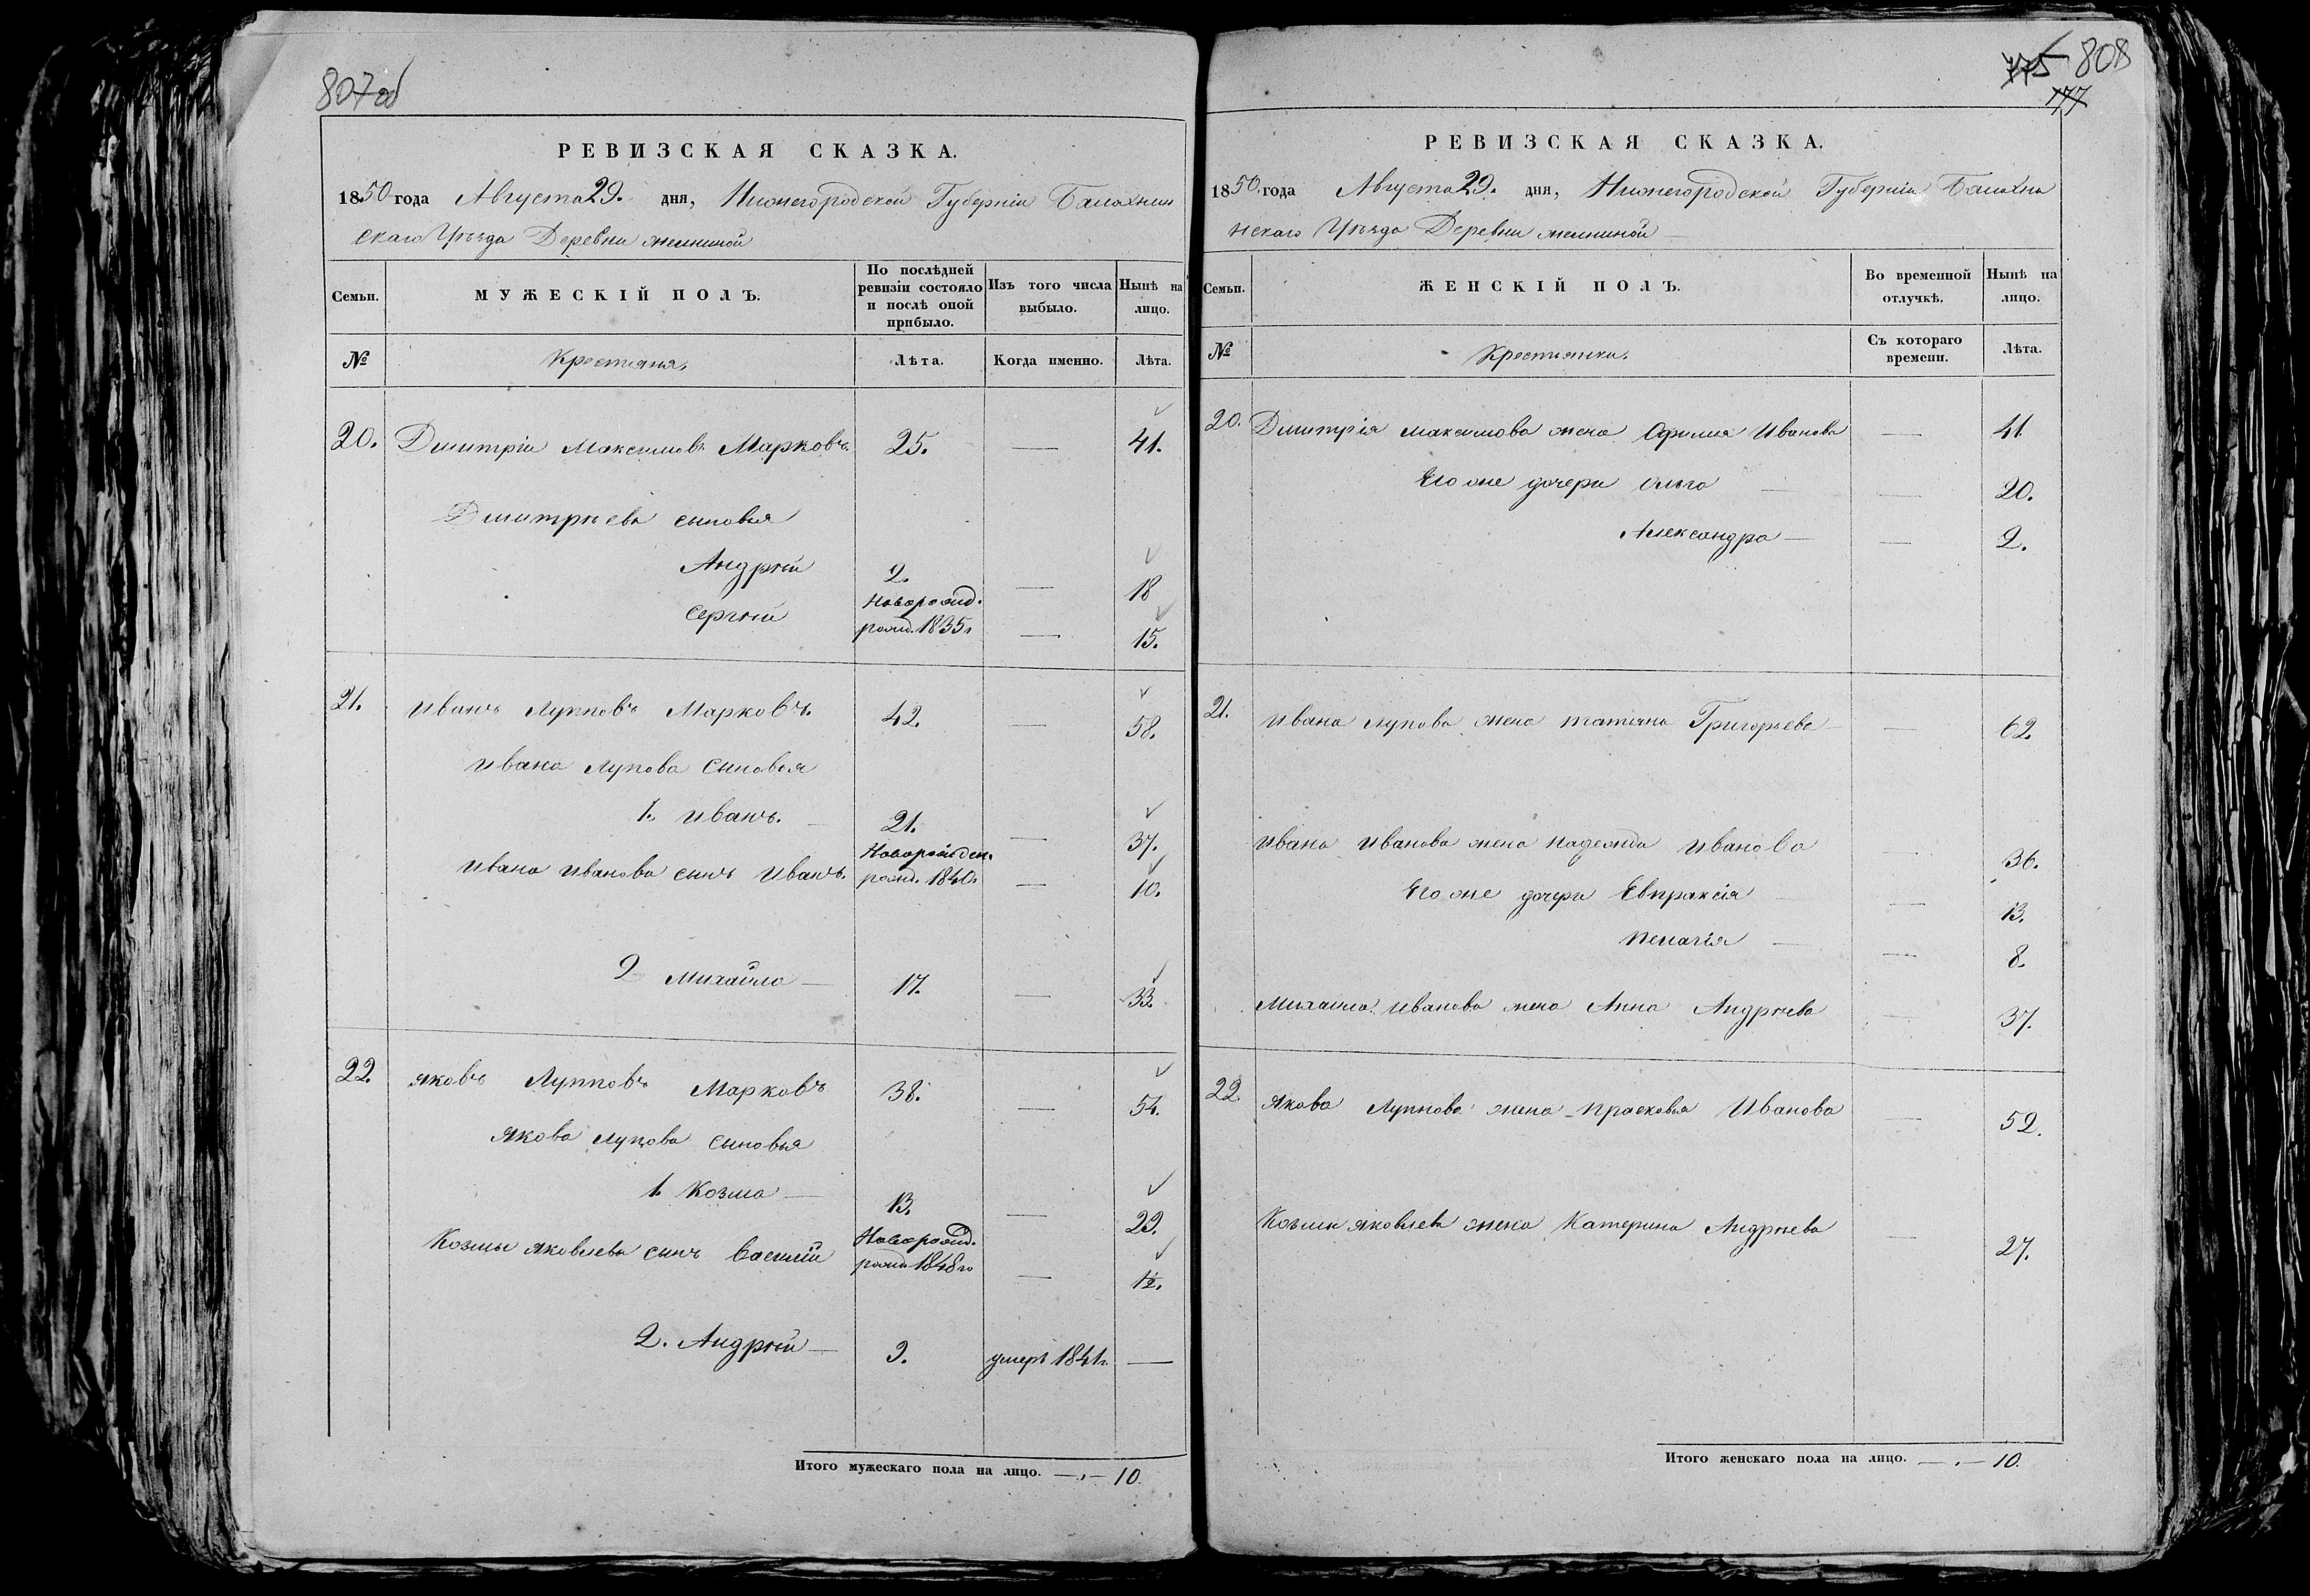 807об
РЕВИЗСКАЯ СКАЗКА.
1850 года Августа 29. дня, Нижегородской Губерніи Балахнин
скаго Уѣзда Деревни
Семьи.
МУЖЕСКІЙ ПОЛЪ.
По послѣдней
ревизіи состояло
и послѣ оной
прибыло.
Изъ того числа
выбыло.
Нынѣ на
лицо.
№
Крестьяня.
Лѣта.
Когда именно.
Лѣта.
20. Дмитрій Максимовъ Марковъ. 25. — 41.
Дмитрѣева сыновья
Андрѣй 2. — 18
Сергѣй Новорожд.
рожд. 1835г — 15.
21. Иванъ Лупповъ Марковъ. 42. — 58.
Ивана Лупова Сыновья
1. Иванъ. — 21. — 37.
Ивана Иванова сынъ Иванъ. Новорожден.
рожд. 1840г — 10.
2 Михайло — 17. — 33.
22. Яковъ Лупповъ Марковъ 38. — 54.
Якова Лупова сыновья
1. Козма — 13. — 29.
Козмы Яковлева сынъ Василій Новорожд.
рожд 1848го — 1½.
2. Андрѣй — 9. умеръ 1841г. —
Итого мужескаго пола на лицо. —„— 10.
775 808
177
РЕВИЗСКАЯ СКАЗКА.
1850 года Августа 29. дня, Нижегородской Губерніи Балахни
нскаго Уѣзда Деревни
Семьи.
ЖЕНСКІЙ ПОЛЪ.
Во временной
отлучкѣ.
Нынѣ на
лицо.
№
Крестьянки.
Съ котораго
времени.
Лѣта.
20. Дмитрія Максимова жена Офимья Иванова — 41
Его же дочери Ольга — — 20.
Александра — — 2.
21. Ивана Лупова жена татьяна Григорьева — — 62.
Ивана Иванова жена надежда Иванова — 36.
Его же дочери Евпраксія — — 13.
пелагія — — 8.
Михайла Иванова жена Анна Андрѣева — 37.
22. Якова Луппова жена прасковья Иванова — 52.
Козмы яковлева жена Катерина Андрѣева — 27.
Итого женскаго пола на лицо. —„— 10.